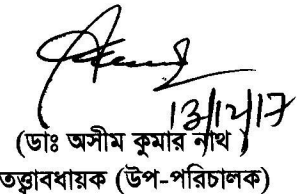 13/12/17
(ডাঃ অসীম কুমার নাথ )
তত্ত্বাবধায়ক (উপ-পরিচালক)